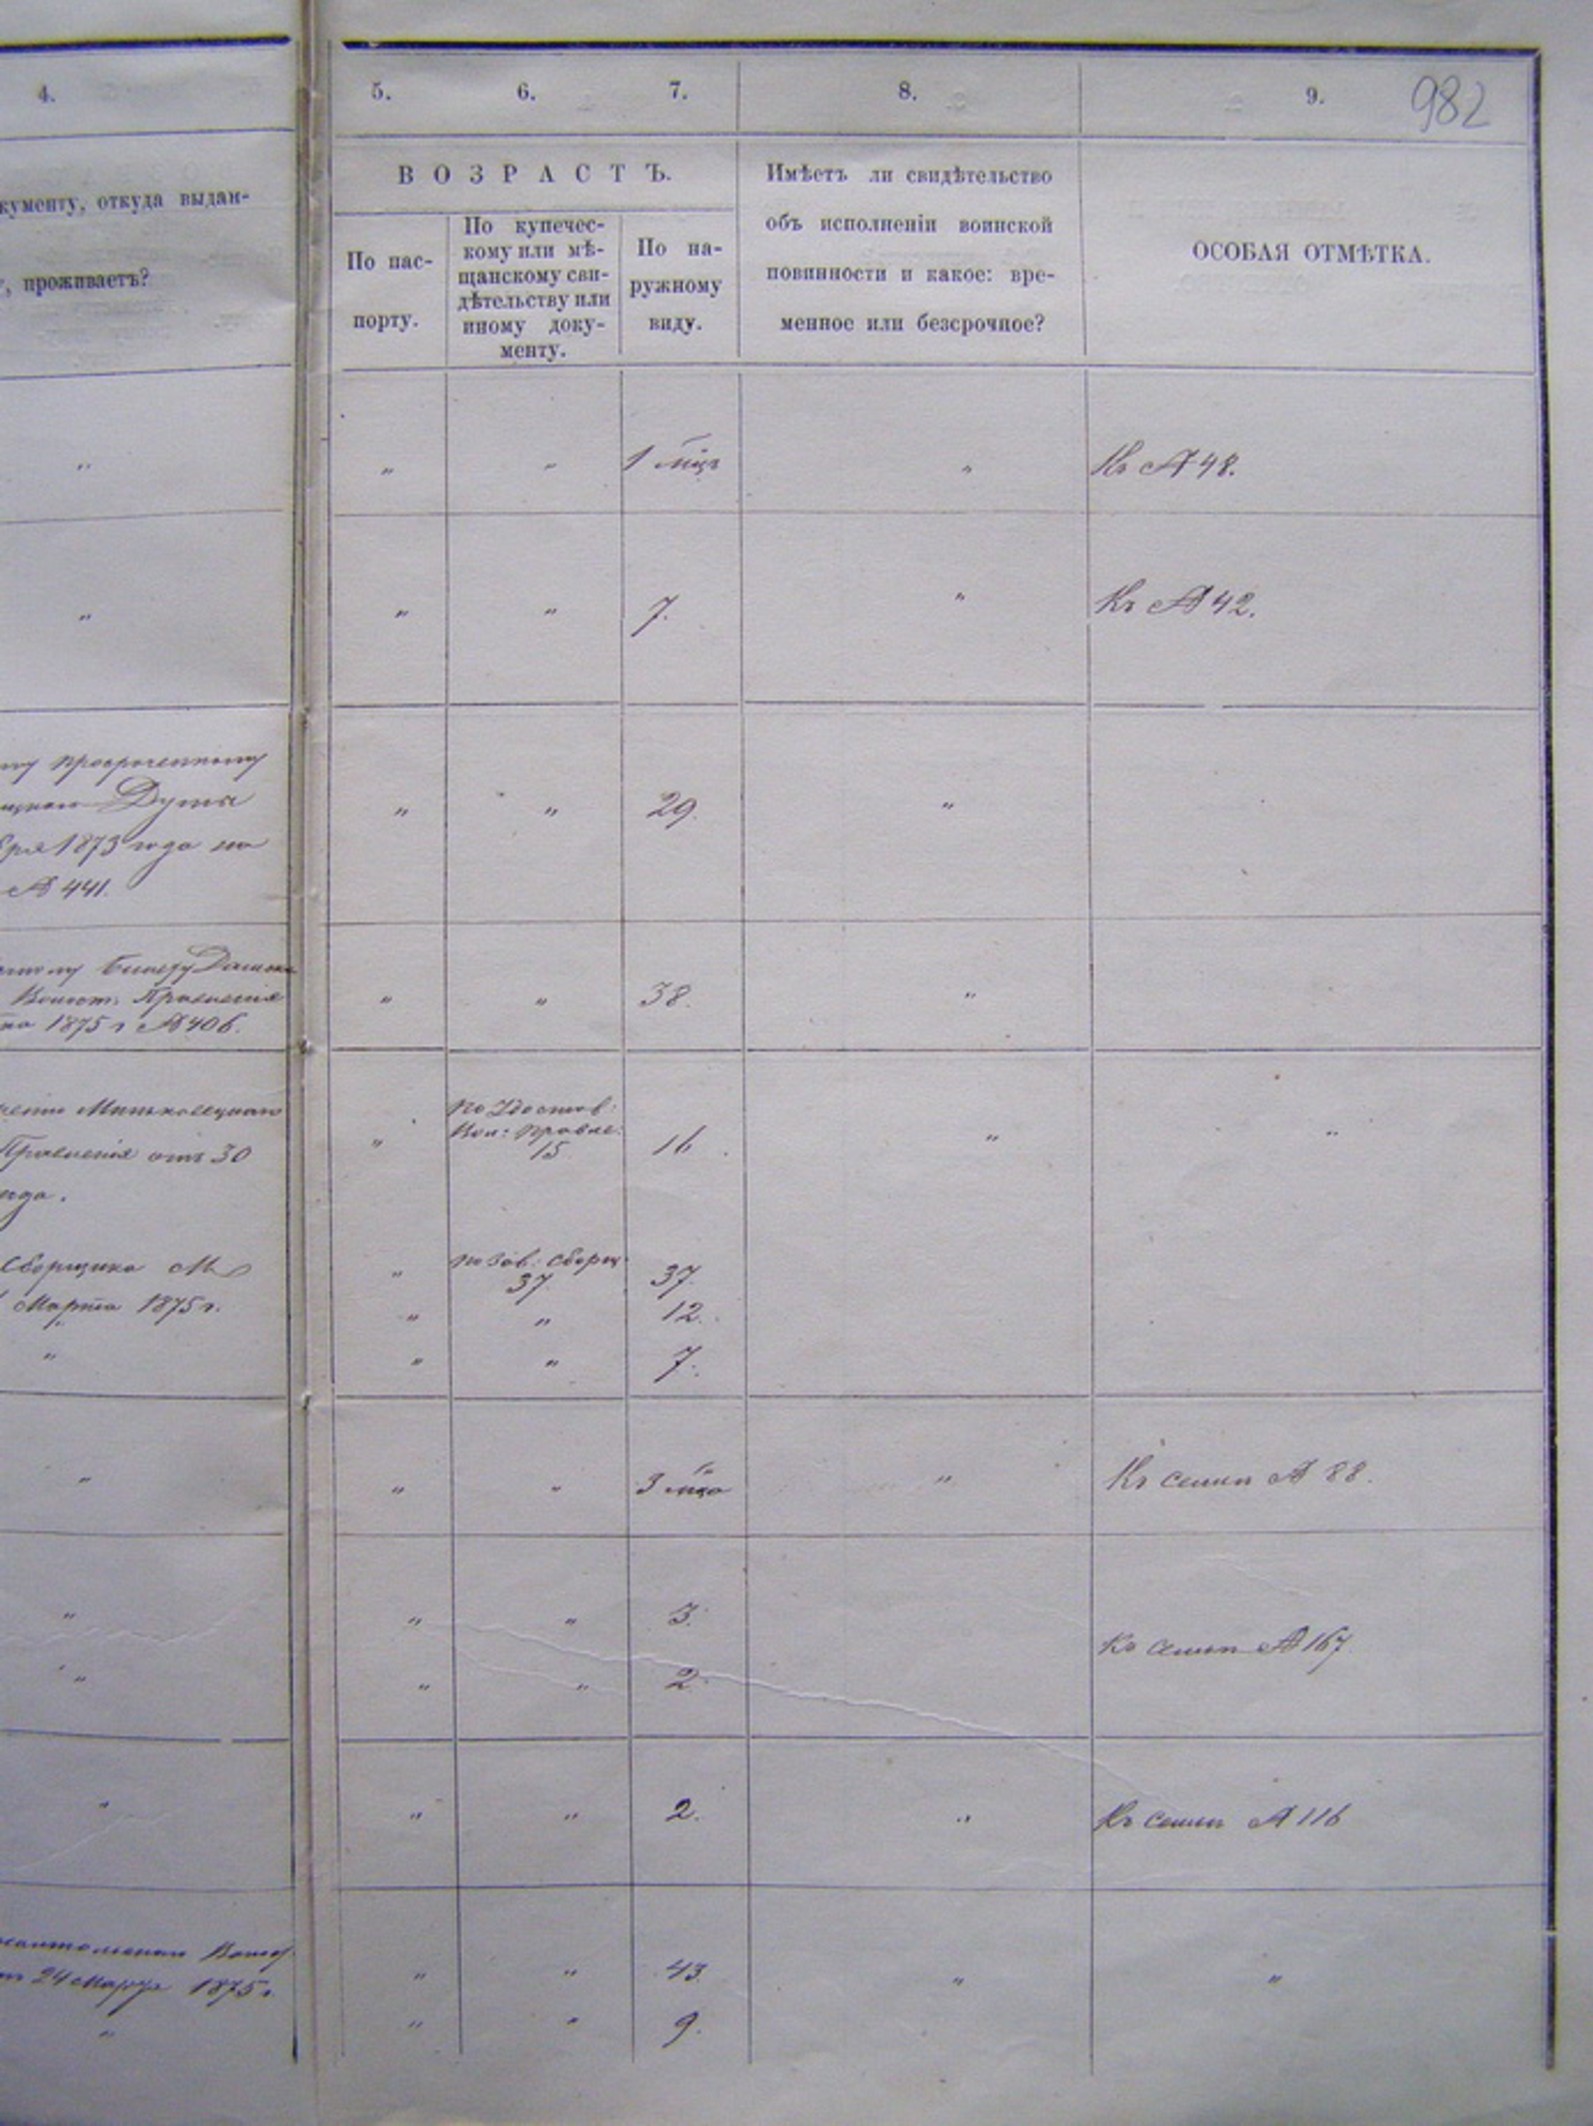 4. 5. 6. 7. 8. 9. 982
кументу, откуда выдан-
проживаетъ?
ВОЗРАСТЪ.
По пас-
порту.
По купечес-
кому или мѣ-
щанскому сви-
дѣтельству или
иному доку-
менту.
По на-
ружному
виду.
Имѣетъ ли свидѣтельство
объ исполненіи воинской
повинности и какое: вре-
менное или безсрочное?
ОСОБАЯ ОТМѢТКА.
" " " 1 мцъ " Къ № 48.
" " " 7. " Къ № 42.
просроченному
Думы
бря 1873 года на
№ 441.
" " 29. "
билету
Волост. Правленія
1875 г № 406.
" " 38. "
Правленія отъ 30
года.
" по Удостов:
Вол: Правле:
15 16. " "
Сборщика М
Марта 1875 г.
" Сборщ.
37. 37.
" " 12.
" " " 7.
" " " 3 мца " Къ семьи № 88.
" " " 3.
Къ семьи № 167
" " " 2
" " " 2. " Къ семьи № 116
24 Марта 1875 г.
" " 43. " "
" " " 9.